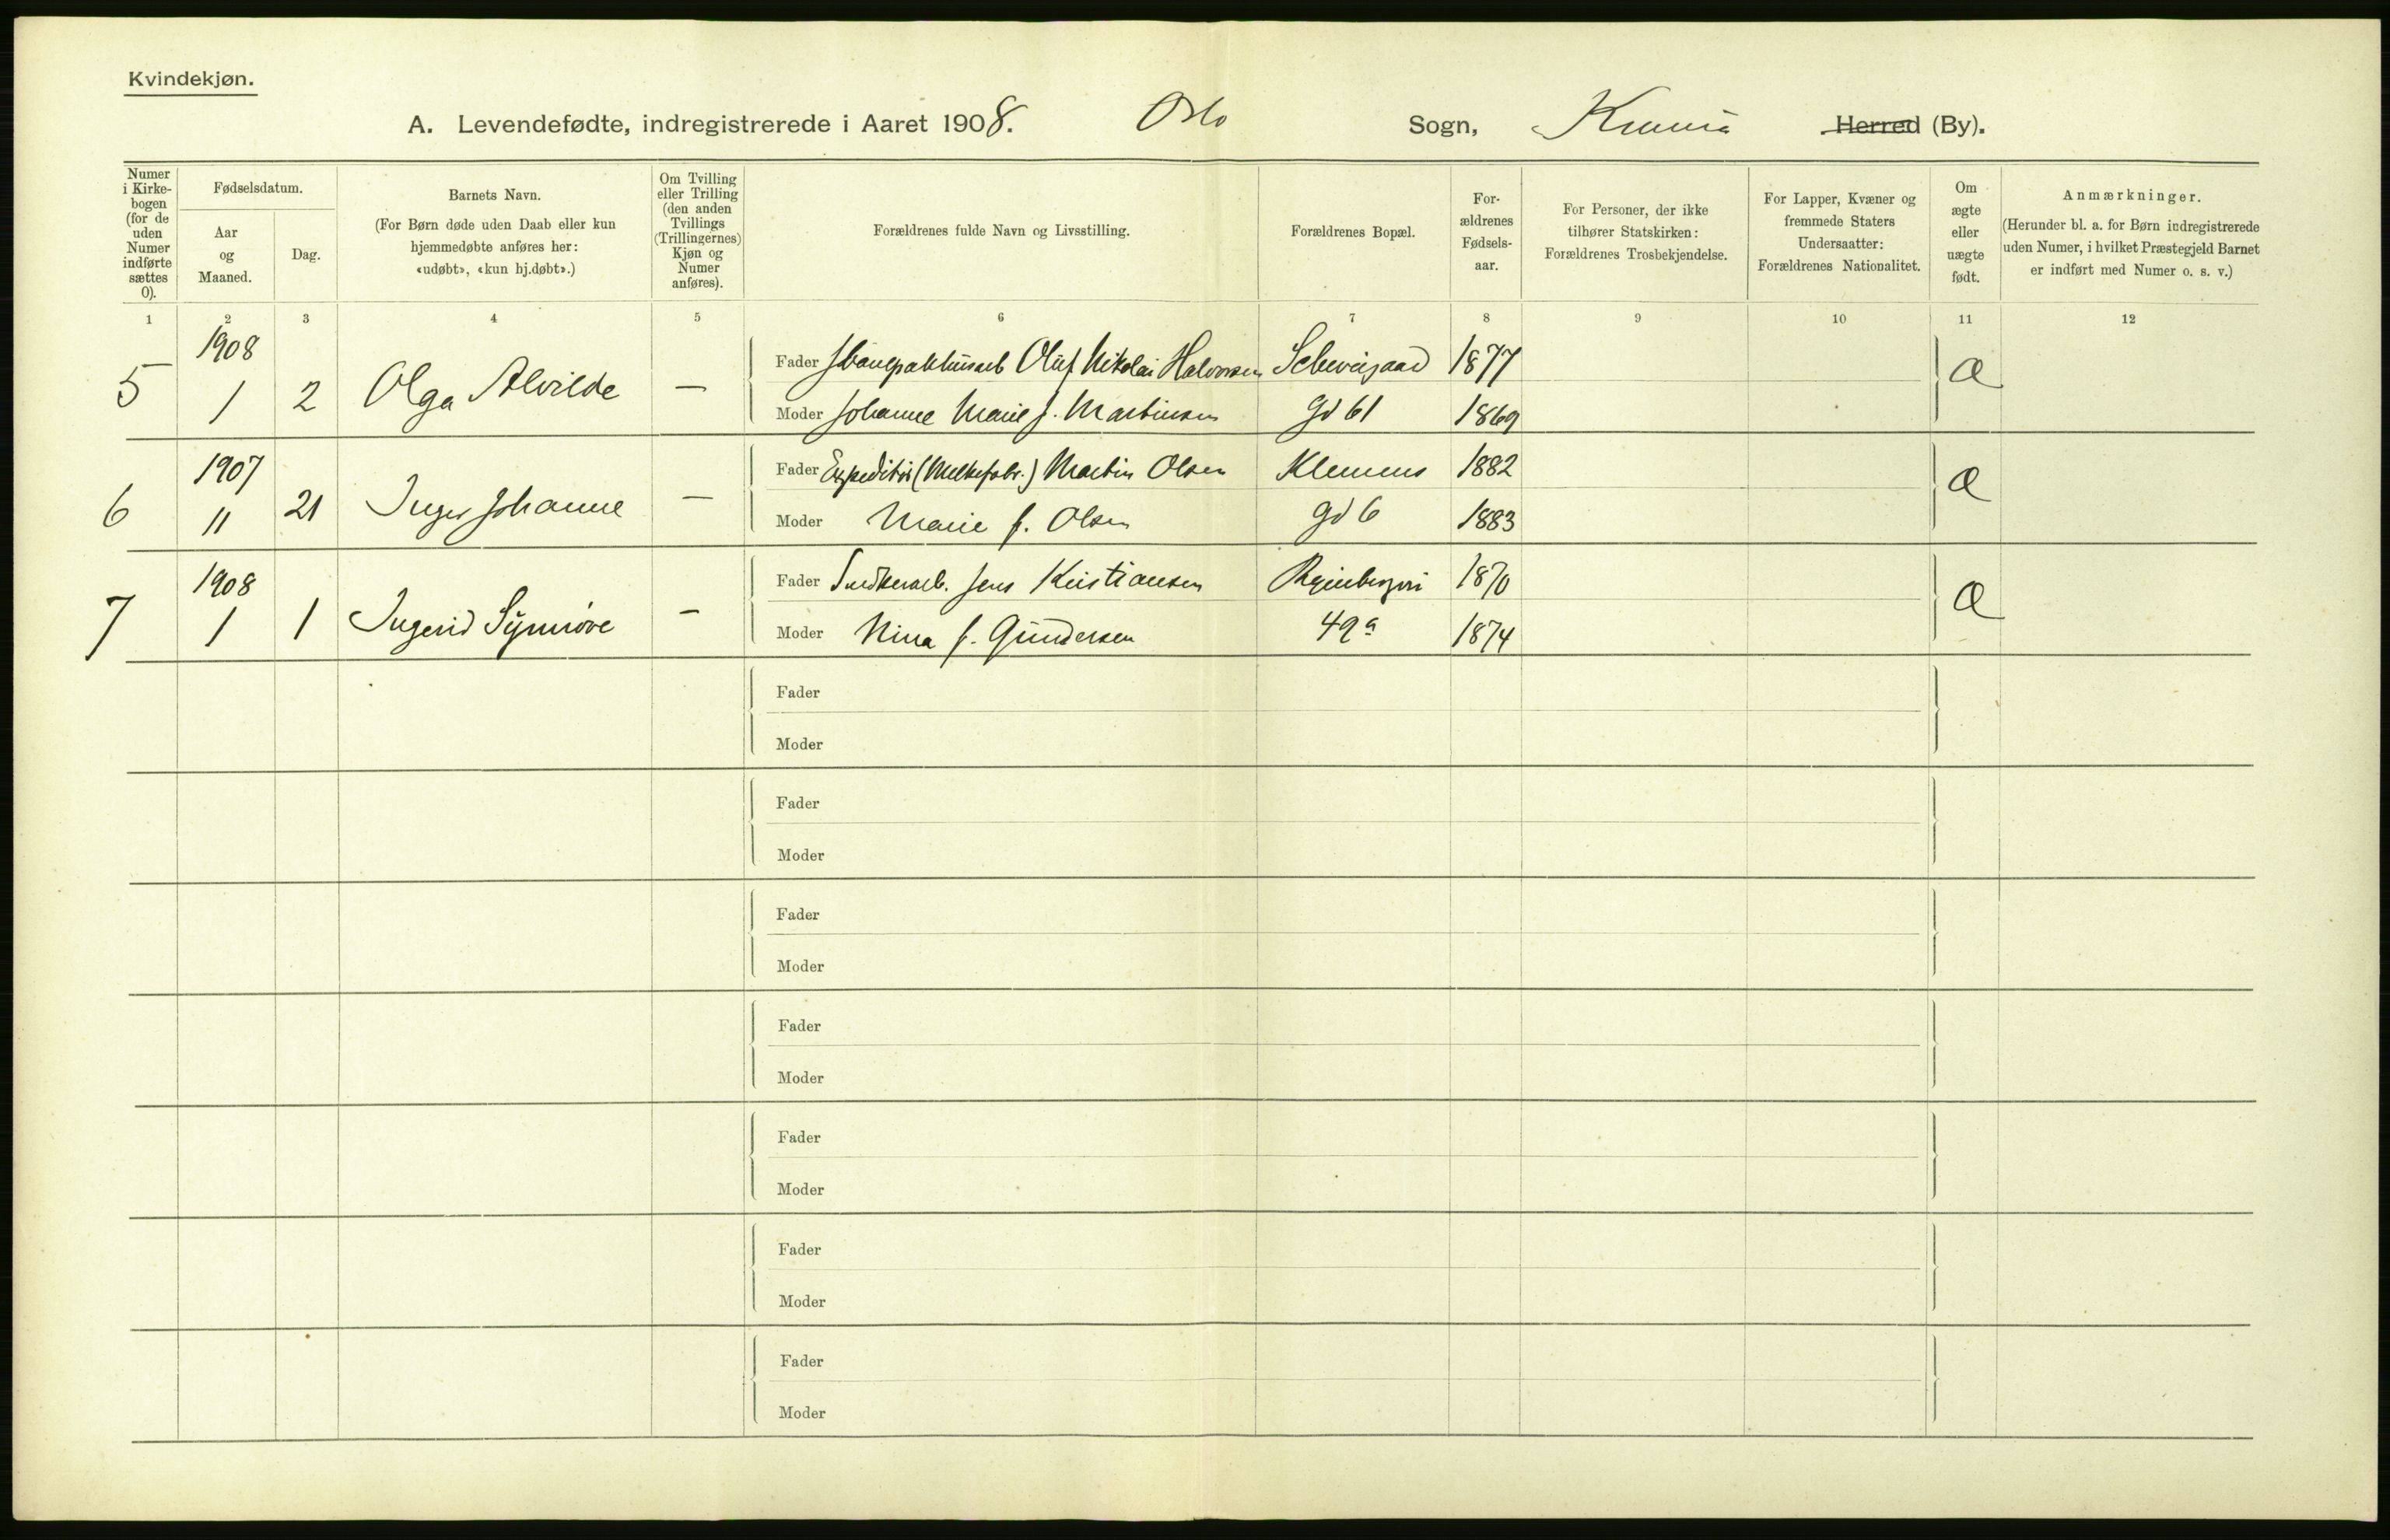 Kvindekjøn.
A. Levendefødte, indregistrerede i Aaret 1908. Oslo Sogn, Kristiania Herred (By).
Numer i Kirkebogen (for de uden Numer indførte sættes 0).
Fødselsdatum.
Aar og Maaned.
Dag.
Barnets Navn.
(For Børn døde uden Daab eller kun hjemmedøbte anføres her: «udøbt», «kun hj.døbt».)
Om Tvilling eller Trilling (den anden Tvillings (Trillingernes) Kjøn og Numer anføres).
Forældrenes fulde Navn og Livsstilling.
Forældrenes Bopæl.
Forældrenes Fødselsaar.
For Personer, der ikke tilhører Statskirken: Forældrenes Trosbekjendelse.
For Lapper, Kvæner og fremmede Staters Undersaatter: Forældrenes Nationalitet.
Om ægte eller uægte født.
Anmærkninger.
(Herunder bl. a. for Børn indregistrerede uden Numer, i hvilket Præstegjeld Barnet er indført med Numer o. s. v.)
1 2 3 4 5 6 7 8 9 10 11 12
1908
5 1 2 Olga Alvilde —
Fader Oluf Nikolai Halvorsen Schweigaard 1877 Æ
Moder Johanne Marie f. Martinsen gd 61 1869
1907
6 11 21 Inger Johanne —
Fader Expeditør (Melkefabr.) Martin Olsen Klemens 1882 Æ
Moder Marie f. Olsen gd 6 1883
1908
7 1 1 Ingerid Synnøve —
Fader Snedkerarb. Jens Kristiansen 1870 Æ
Moder Nina f. Gundersen 49a 1874
Fader
Moder
Fader
Moder
Fader
Moder
Fader
Moder
Fader
Moder
Fader
Moder
Fader
Moder